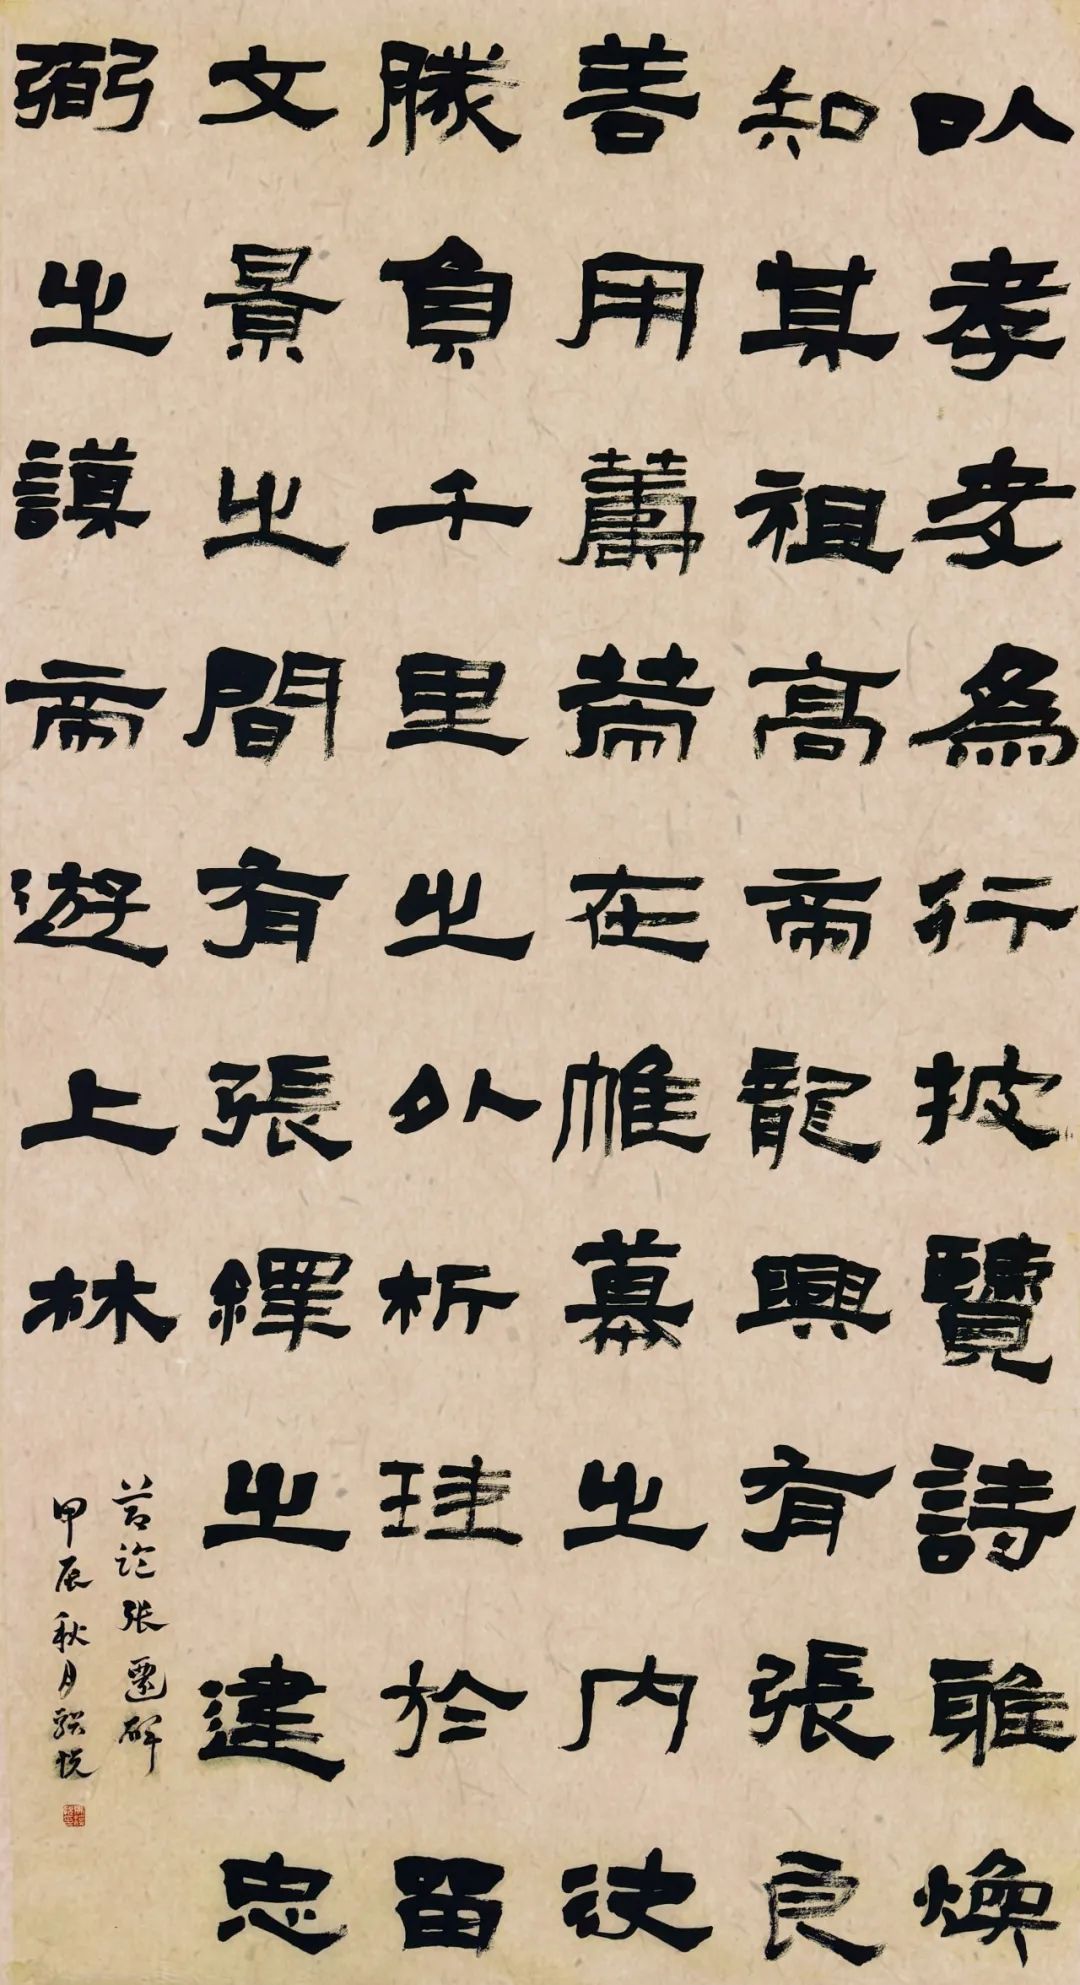 以孝友為行披覽詩雅煥
知其祖高帝龍興有張良
善用籌策在帷幕之內決
勝負千里之外析珪於留
文景之間有張釋之建忠
弼之謨帝遊上林
节临张遷碑
甲辰秋月